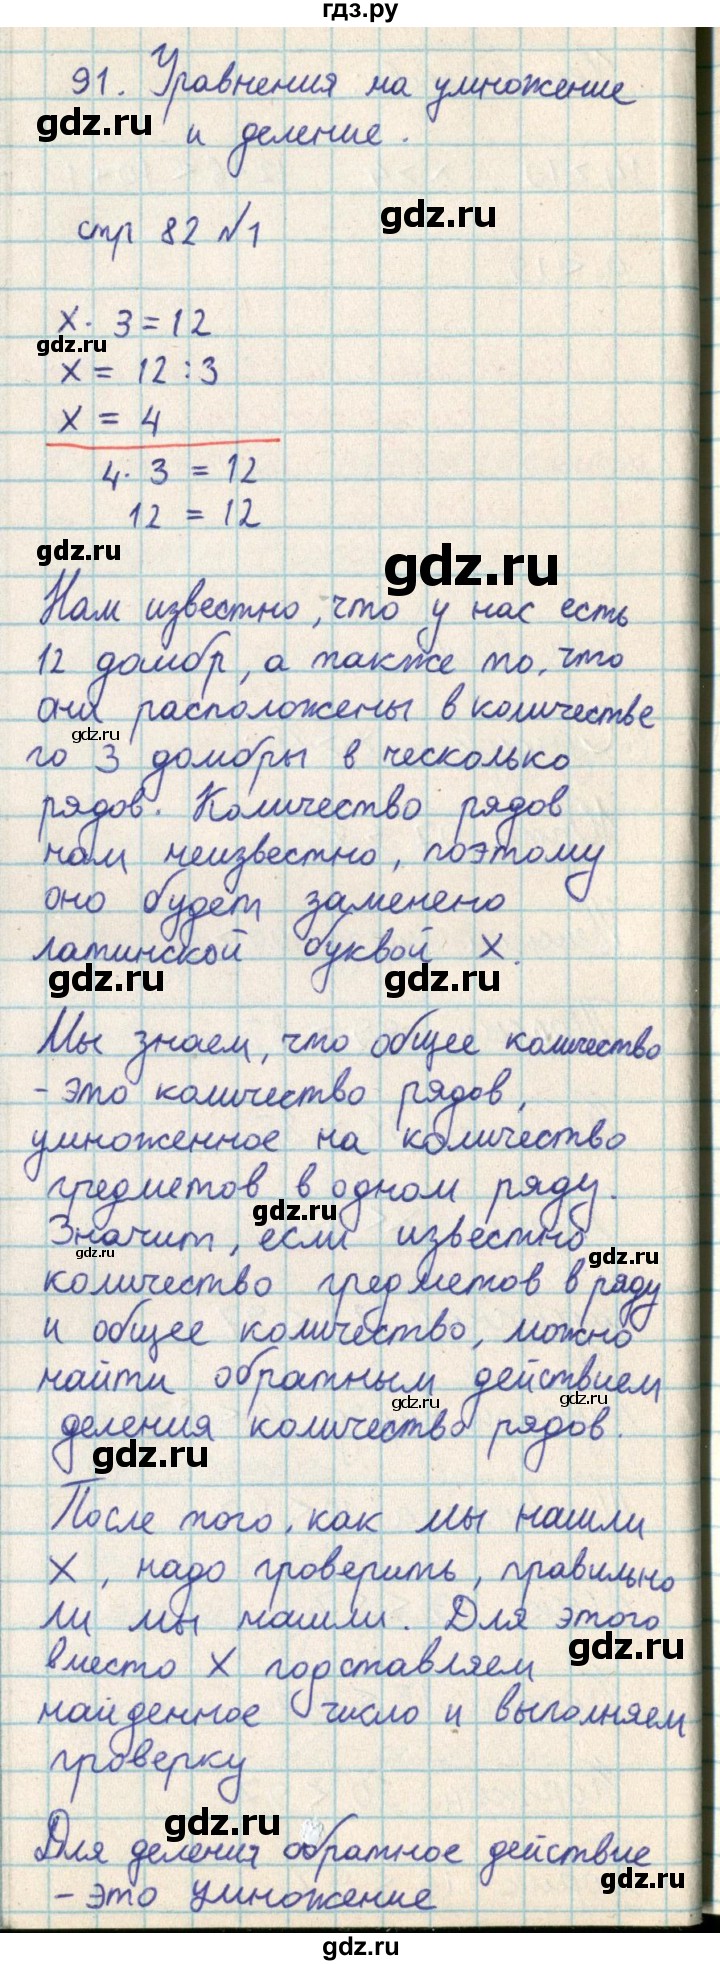 гдз.ру
91. Уравнения на умножение
gdz.ru
и деление.
gdz.ru
стр 82 №1
x · 3 = 12
gdz.ru
x = 12 : 3
x = 4
4 · 3 = 12
12 = 12
gdz.ru
gdz.ru
Нам известно, что у нас есть
12 домбр, а также то, что
они расположены в количестве
gdz.ru
го 3 домбры в несколько
рядов. Количество рядов
нам неизвестно, поэтому
оно будет заменено
латинской буквой X.
gdz.ru
gdz.ru
Мы знаем, что общее количество
- это количество рядов,
умноженное на количество
предметов в одном ряду.
gdz.ru
Значит, если известно
gdz.ru
gdz.ru
количество предметов в ряду
и общее количество, можно
найти обратным действием
gdz.ru
gdz.ru
деления количество рядов.
gdz.ru
После того, как мы нашли
X, надо проверить, правильно
ли мы нашли. Для этого
gdz.ru
вместо X подставляем
найденное число и выполняем
проверку
gdz.ru
Для деления обратное действие
gdz.ru
- это умножение
gdz.ru